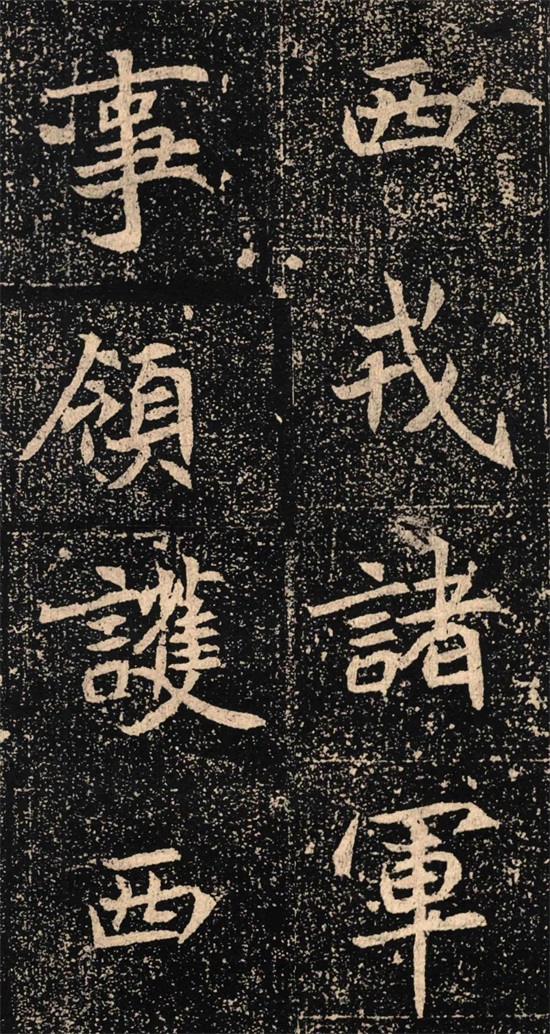 西戎諸軍
事領護西